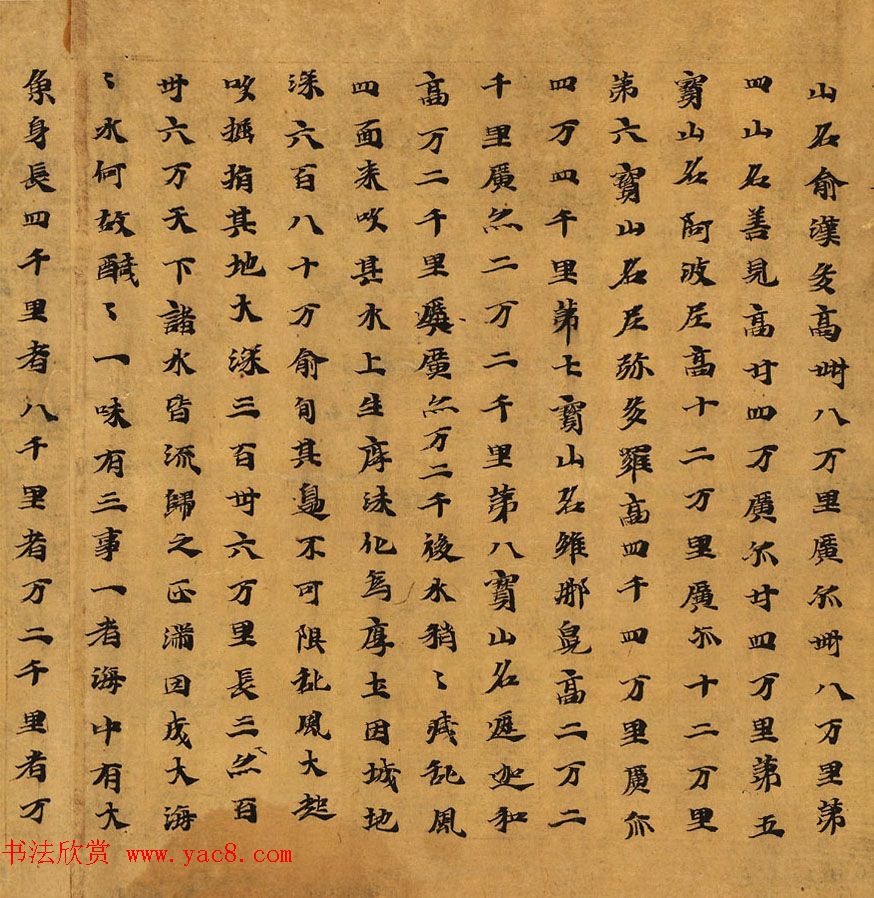 山名俞漢多高卌八万里廣尒卌八万里第
四山名善見高廿四万廣尒廿四万里第五
寶山名阿波尼高十二万里廣尒十二万里
第六寶山名尼弥多羅高四千四万里廣尒
四万四千里第七寶山名維那兜高二万二
千里廣亦二万二千里第八寶山名遮迦和
高万二千里廣亦万二千後水稍〻殘乱風
四面来吹其水上生厚沫化為厚土因城地
深六百八十万俞旬其邊不可限乱風大起
吹掘揗其地大深三百卌六万里長三亦百
卌六万天下諸水皆流歸之正滿因成大海
〻水何故醎〻一味有三事一者海中有大
魚身長四千里者八千里者万二千里者万
书法欣赏 www.yac8.com